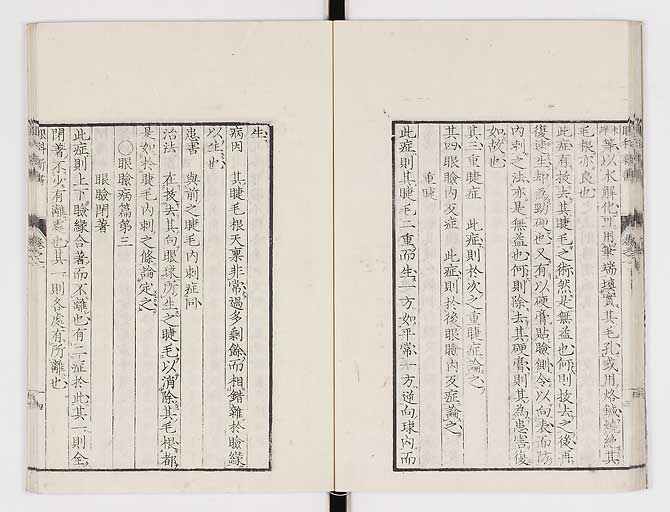 等以水解化可用筆端填實其毛孔或用烙鍼燒絶其
毛根亦良也
此症有拔去其睫毛之術然是無益也何則拔去之後再
復速生却為勁硬也又有以硬膏貼瞼側令以向表而防
內刺之法亦是無益也何則除去其硬膏則其為患害復
如故也
其三重睫症 此症則於次之重睫症論之
其四眼瞼內反症 此症則於後眼瞼內反症論之
重睫
此症則其睫毛二重而生一方如平常一方逆向球內而
生
病因 其睫毛根天稟非常過多剩餘而相錯雜於瞼緣
以生也
患害 與前之睫毛內刺症同
治法 在拔去其向眼球所生之睫毛以消除其毛根都
是如於睫毛內刺之條論定之
〇眼瞼病篇第三
眼瞼閉著
此症則上下瞼緣合著而不離也有二症於此其一則全
閉著不少有離隙也其一則各處有所離也
眼科新書